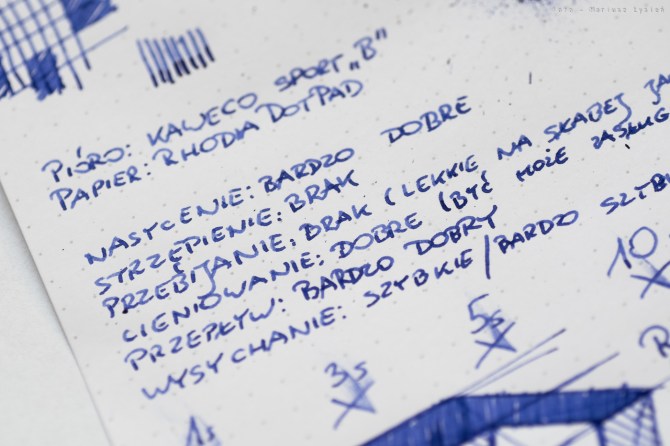 foto - Mariusz Łysiak
PIÓRO: KAWECO SPORT „B"
PAPIER: RHODIA DOTPAD
NASYCENIE: BARDZO DOBRE
STRZĘPIENIE: BRAK
PRZEBIJANIE: BRAK (LEKKIE NA SŁABEJ
CIENIOWANIE: DOBRE (BYĆ MOŻE
PRZEPŁYW: BARDZO DOBRY
WYSYCHANIE: SZYBKIE / BARDZO
1s 3s 5s 10